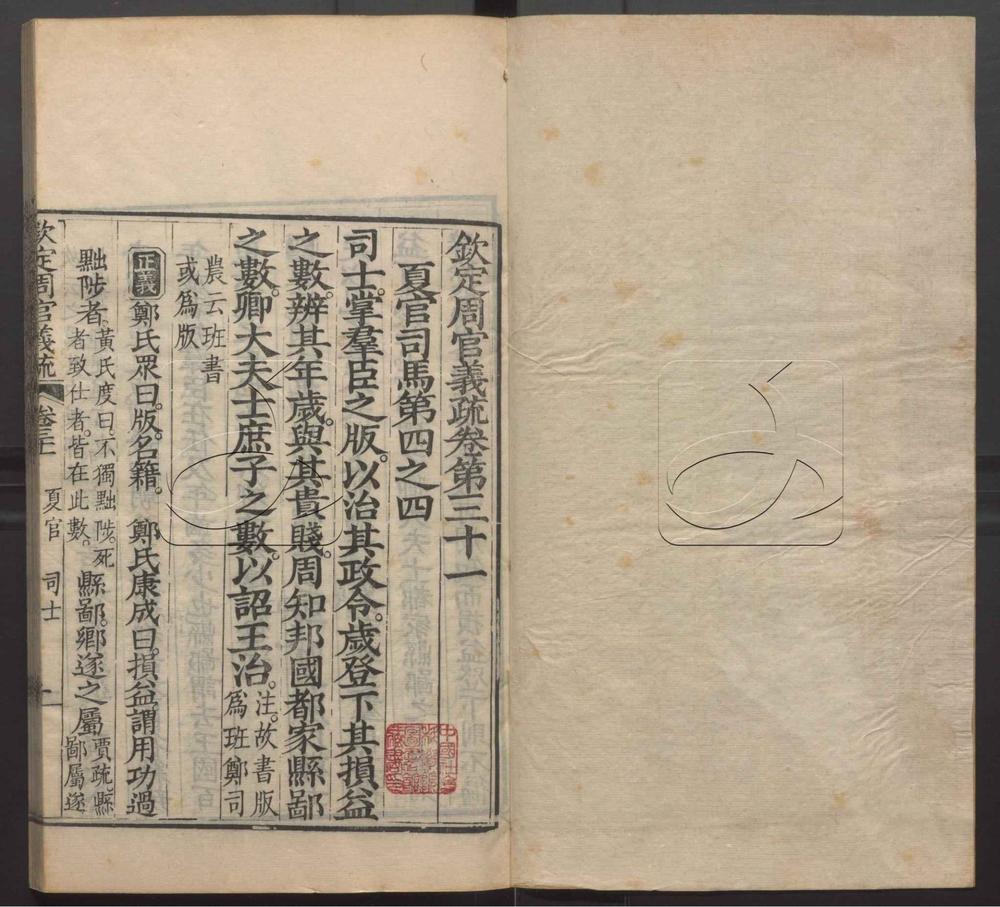 欽定周官義疏卷第三十一
夏官司馬第四之四
司士。掌羣臣之版。以治其政令。歲登下其損益
之數。辨其年歲。與其貴賤。周知邦國都家縣鄙
之數。卿大夫士庶子之數。以詔王治。注。故書版
爲班鄭司
農云班書
或爲版
正義鄭氏眾曰。版。名籍。 鄭氏康成曰。損益。謂用功過
黜陟者。黃氏度曰。不獨黜陟。死
者致仕者。皆在此數。
縣鄙。鄉遂之屬賈疏。縣
鄙屬遂
欽定周官義疏 卷三十一 夏官 司士 一